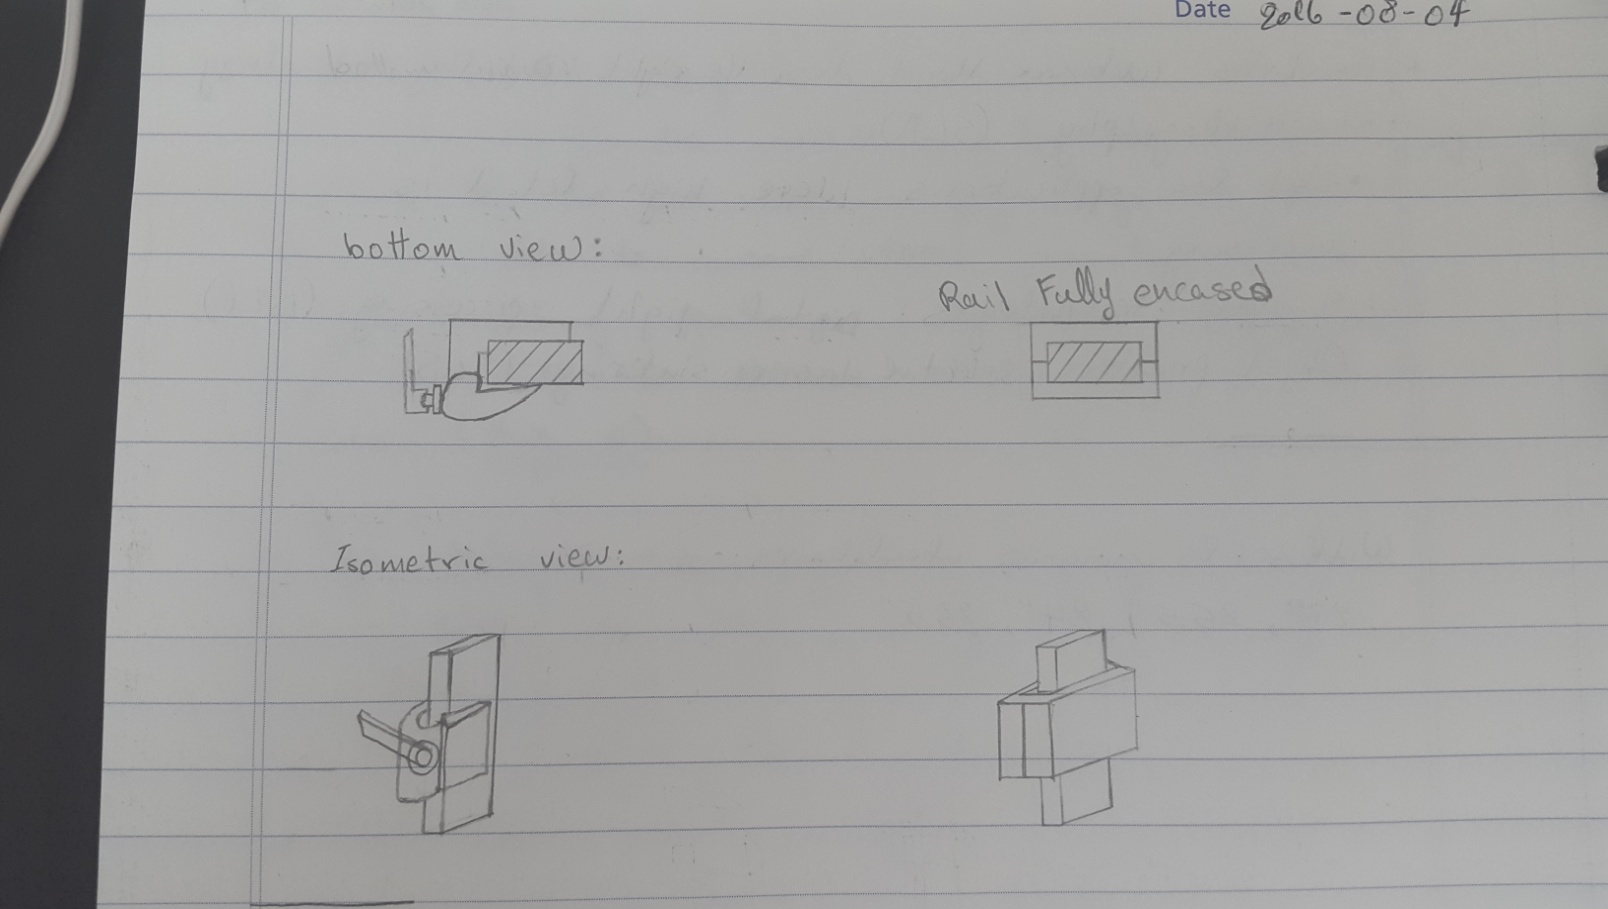 Date 2016-08-04
bottom view:
Rail Fully encased
Isometric view: